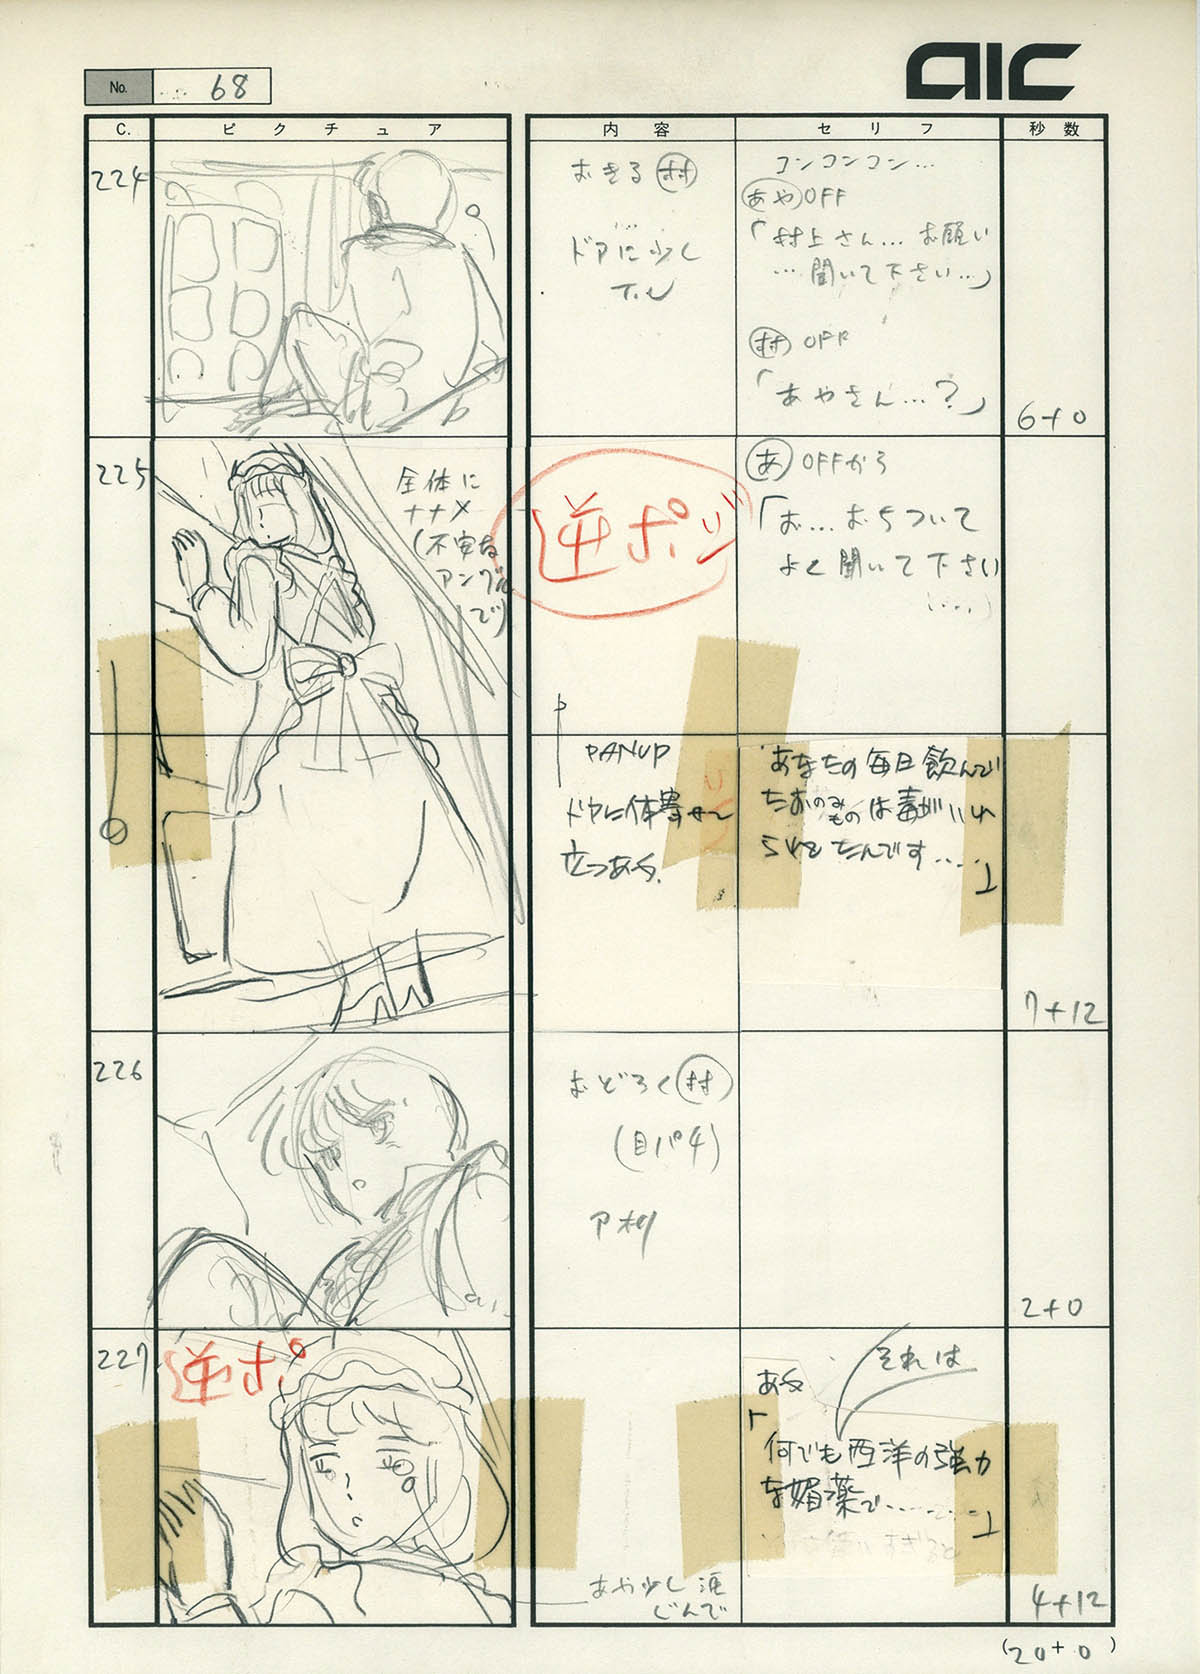 aic
No. 68
C. ピクチュア 内容 セリフ 秒数
224
おきる 村
ドアに少し
T.U
コンコンコン…
あや OFF
「村上さん… お願い
… 聞いて下さい…」
村 OFF
「あやさん…？」
6+0
225
全体に
ナナメ
(不安な
アングル
で)
逆ポジ
あ OFFから
「お…おちついて
よく聞いて下さい
…」
PANUP
ドアに体寄せ
立つあや.
あなたの毎日飲んで
たおのみものは毒がいれ
られてたんです……」
7+12
226
おどろく 村
(目パチ)
アオリ
2+0
227
逆ポ
それは
あや
「
何でも西洋の強力
な媚薬で………」
あや少し涙
じんで
4+12
(20+0)